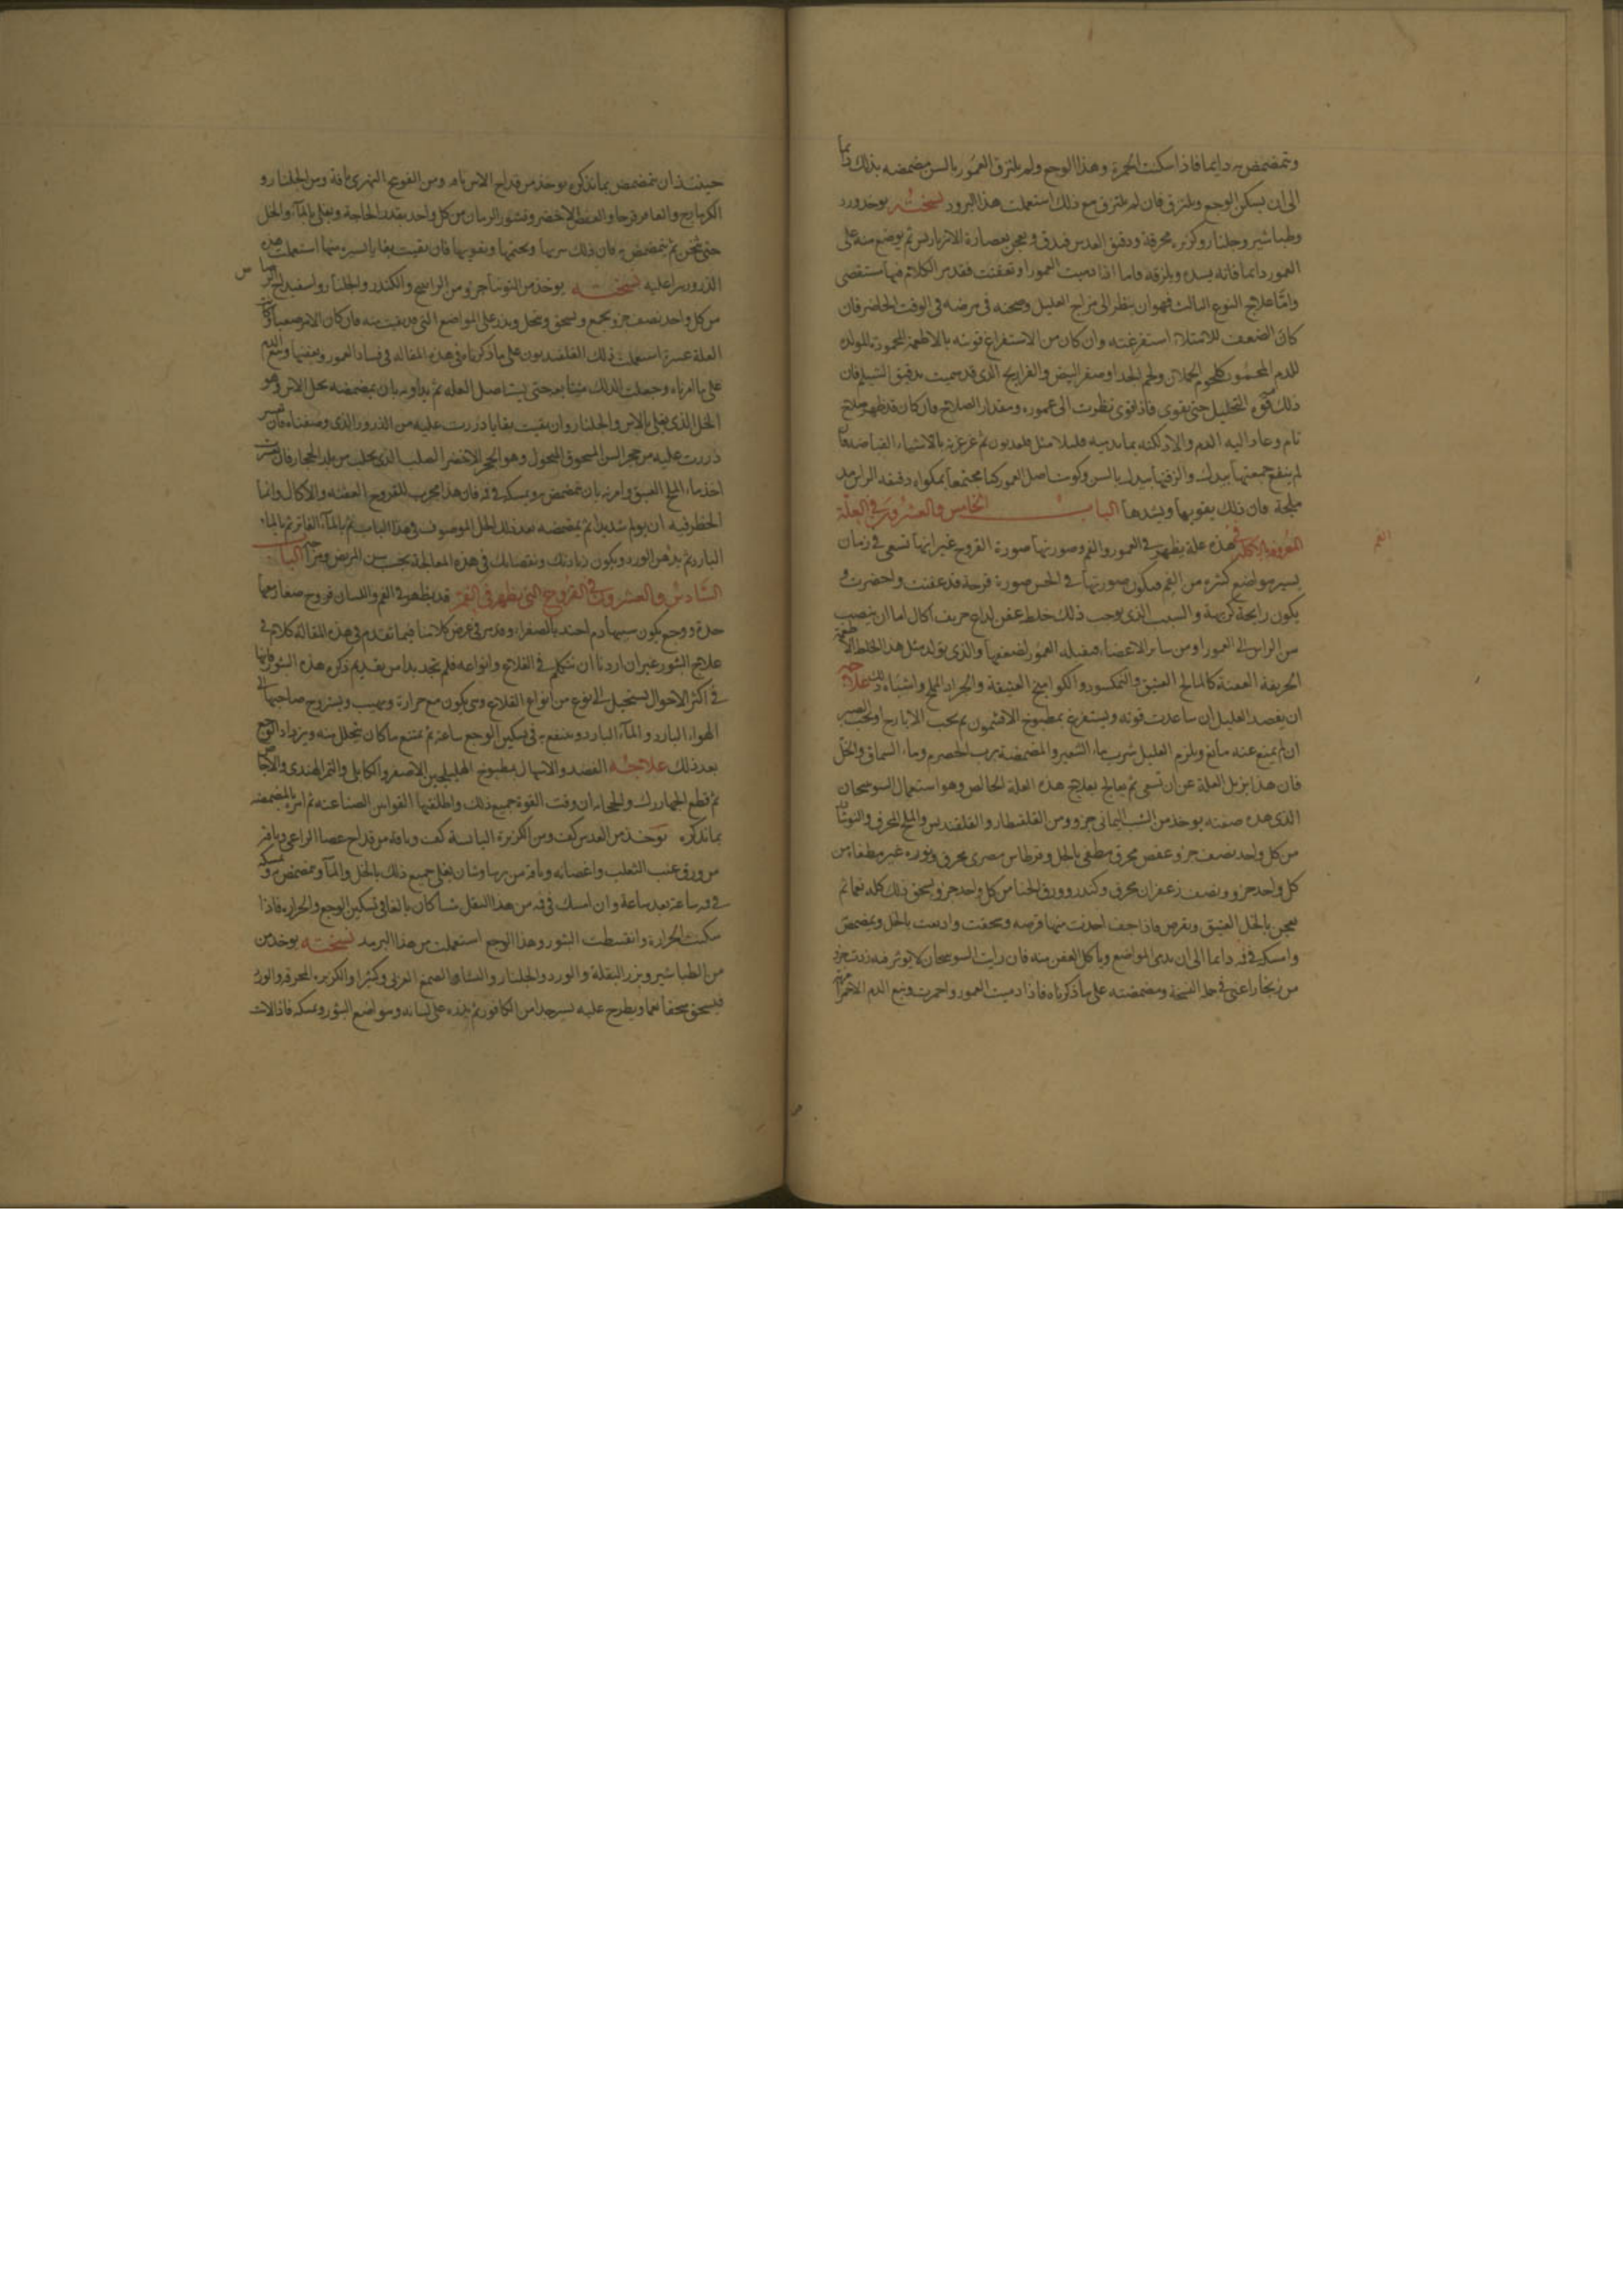 وتمضمض به دايما فاذا سكنت الحمرة وهذا الوجع ولم يلتزق العمور بالسن مضمضه بذلك دايما
الى ان يسكن الوجع ويلتزق فان لم يلتزق مع ذلك استعملت هذا البرود نسخته يوخذ ورد
وطباشير وجلنار وكزبره محرقة ودقيق العدس فيدق ويعجن بعصارة الانبرباريس ثم يوضع منه على
العمور دايما فانه يسده ويلزقه واما اذا دميت العمور او تعفنت فقد مر الكلام فيها مستقصى
واما علاج النوع الثالث فهو ان ينظر الى مزاج العليل وصحته في مرضه في الوقت الحاضر فان
كان الضعف للامتلاء استفرغته وان كان من الاستفراغ قوته بالاطعمة المحمودة المولدة
للدم المحمود كلحوم الحملان ولحم الجدا وصفر البيض والفراريج الذى قد سميت بدقيق الشيلم فان
ذلك قوى التحليل حتى يقوى فاذا قوى نظرت الى عموره ومقدار الصلاح فان كان قد ظهر صلاح
تام وعاد اليه الدم والا دلكته بما يدميه قليلا مثل قلفديون ثم غرغرته بالاشياء القباضة فان
لم ينفع جمعتها بيدك والزقتها بيدك بالسن وكويت اصل العمور كما مجتمعا بمكواه دقيقه الراس مد
مليحة فان ذلك يقويها ويشدها الباب الخامس والعشرون في العلة
المعروفة بالاكلة في الفم هذه علة يظهر في العمور والفم وصورتها صورة القروح غير انها تسعى في زمان
يسير مواضع كثيره من الفم فيكون صورتها في الحس صورة قرحة قد عفنت واخضرت و
يكون رايحة كريهة والسبب الذى يوجب ذلك خلط عفن لداع حريف اكال اما ان ينصب
من الراس الى العمور او من سائر الاعضاء فيقبله العمور لضعفها والذى يولد مثل هذا الخلط الاطعمة
الحريفة العفنة كالمالح العتيق والنمكسود والكواميخ العتيقة والجراد المملح واشباه ذلك علاجه
ان يفصد العليل ان ساعدت قوته ويستفرغ بمطبوخ الافتيمون ثم بحب الايارج او بحب الصبر
ان لم يمنع عنه مانع ويلزم العليل شرب ماء الشعير والمضمضة برب الحصرم وماء السماق والخل
فان هذا يزيل العلة عن ان تسعى ثم يعالج بعلاج هذه العلة الخالص وهو استعمال السوسحان
الذى هذه صفته يوخذ من الشب اليماني جزو ومن القلقطار والقلقنديس والملح المحرق والتوتيا
من كل واحد نصف جزو عفص محرق مطفى بالخل وقرطاس مصرى محرق ونوره غير مطفاة من
كل واحد جزو ونصف زعفران محرق وكندر وورق الحنا من كل واحد جزو يسحق ذلك كله نعما ثم
يعجن بالخل العتيق ويقرص فاذا جف اخذت منها قرصه وسحقت واديفت بالخل وتمضمض
وامسك في فمه دايما الى ان يدمى المواضع وياكل العفن منه فان رايت السوسحان لا يوثر فيه زدت جزو
من زنجار اعنى في هذا النسخة ومضمضته على ما ذكرناه فاذا دميت العمور واحمرت ونبع الدم الاحمر امرته
حينئذ ان يتمضمض بما نذكره يوخذ من قداح الاس باقه ومن الفوتنج النهرى باقة ومن الجلنار و
الكزمازج والعاقرقرحا والعفص الاخضر وقشور الرمان من كل واحد بقدر الحاجة ويغلى بالماء والخل
حتى يثخن ثم يتمضمض به فان ذلك يبريها ويختمها ويقويها فان بقيت بقايا يسيره منها استعملت هذه
الذرور مرا عليه نسخته يوخذ من التوتيا جزو ومن الراسخ والكندر والجلنار واسفيداج الرصاص
من كل واحد نصف جزو يجمع ويسحق وينخل ويذر على المواضع التى قد بقيت منه فان كان الامر صعبا وكانت
العلة عسرة استعملت ذلك القلفديون على ما ذكرناه في هذه المقاله في فساد العمور وتعفنها ومنع الدم
على ما امرناه وجعلت الدلك متتابعا حتى يستاصل العله ثم يداويه بان يمضمضه بخل الاس وهو
الخل الذى يغلى بالاس والجلنار وان بقيت بقايا ذررت عليه من الذرور الذى وصفناه فان لم يبر
ذررت عليه من حجر المسن المسحوق المنخول وهو الحجر الاخضر الصلب الذى يجلب من بلد الحجاز فان لم يبر
اخذ ماء الملح العتيق وامرته بان تمضمض به ويمسكه في فمه فان هذا مجرب للقروح العفنه والاكال وانما
الخطر فيه ان يولم شديدا ثم يمضمضه بعد ذلك بالخل الموصوف في هذا الباب ثم بالماء الفاتر ثم بالماء
البارد ثم بدهن الورد ويكون زيادتك ونقصانك في هذه المعالجة بحسب سن المريض ومزاجه الباب
السادس والعشرون في القروح التى يظهر في الفم قد يظهر في الفم واللسان قروح صغار معها
حدة ووجع يكون سببها دم احتد بالصفراء وقد مر في عرض كلامنا فيما تقدم في هذه المقالة كلام في
علاج البثور غير ان اردنا ان نتكلم في القلاع وانواعه فلم نجد بدا من تقديم ذكر هذه البثور فانها
في اكثر الاحوال يستحيل الى نوع من انواع القلاع وهى يكون مع حرارة ولهيب ويستروح صاحبها الى
الهواء البارد والماء البارد وينتفع به في تسكين الوجع ساعة ثم يمتنع ما كان يتحلل منه ويزداد الوجع
بعد ذلك علاجه الفصد والاسهال بمطبوخ الهليلجين الاصفر والكابلى والتمر الهندى والاجاص
ثم قطع الجهاررك والحجامه ان وفت القوة جميع ذلك واطلقتها القوانين الصناعية ثم امر بالمضمضه
بما نذكره يوخذ من العدس كف ومن الكزبرة اليابسة كف وباقة من قداح عصا الراعى وباقة
من ورق عنب الثعلب واغصانه وباقة من برسياوشان يغلى جميع ذلك بالخل والماء ويتمضمض به ويمسكه
في فيه ساعة بعد ساعة وان امسك في فيه من هذا الثفل شيئا كان بالغا في تسكين الوجع والحرارة فاذا
سكنت الحرارة وانقسطت البثور وهذا الوجع استعملت من هذا البرود نسخته يوخذ من
من الطباشير وبزر البقلة والورد والجلنار والنشا والصمغ العربى وكثيرا والكزبره المحرقه والورد
فيسحق سحقا نعما ويطرح عليه يسير جدا من الكافور ثم يذره على لسانه ومواضع البثور ويمسكه فاذا لانت